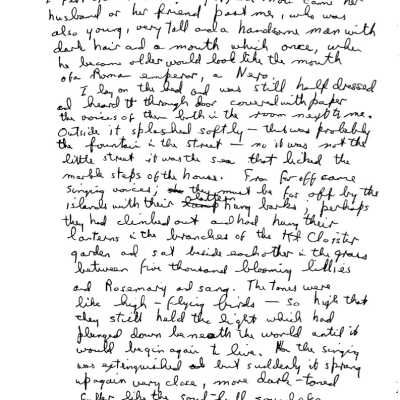 husband or her friend past me, who was
also young, very tall and a handsome man with
dark hair and a mouth which once, when
he became older would look like the mouth
of a Roman emperor, a Nero.
I lay on the bed and was still half dressed
and heard it through door covered with paper
the voices of them both in the room next to me.
Outside it splashed softly — this was probably
the fountain in the street — no it was not the
little street it was the sea that licked the
marble steps of the house. From far off came
singing voices; they must be far off by the
islands with their hung barks; perhaps
they had climbed out and had hung their
lanterns in the branches of the Cloister
garden and sat beside each other in the grass
between five thousand blooming lillies
and Rosemary and sang. The tones were
like high-flying birds — so high that
they still held the light which had
plunged down beneath the world until it
would begin again to live. the singing
was extinguished but suddenly it sprang
up again very close, more dark-toned
like the soul